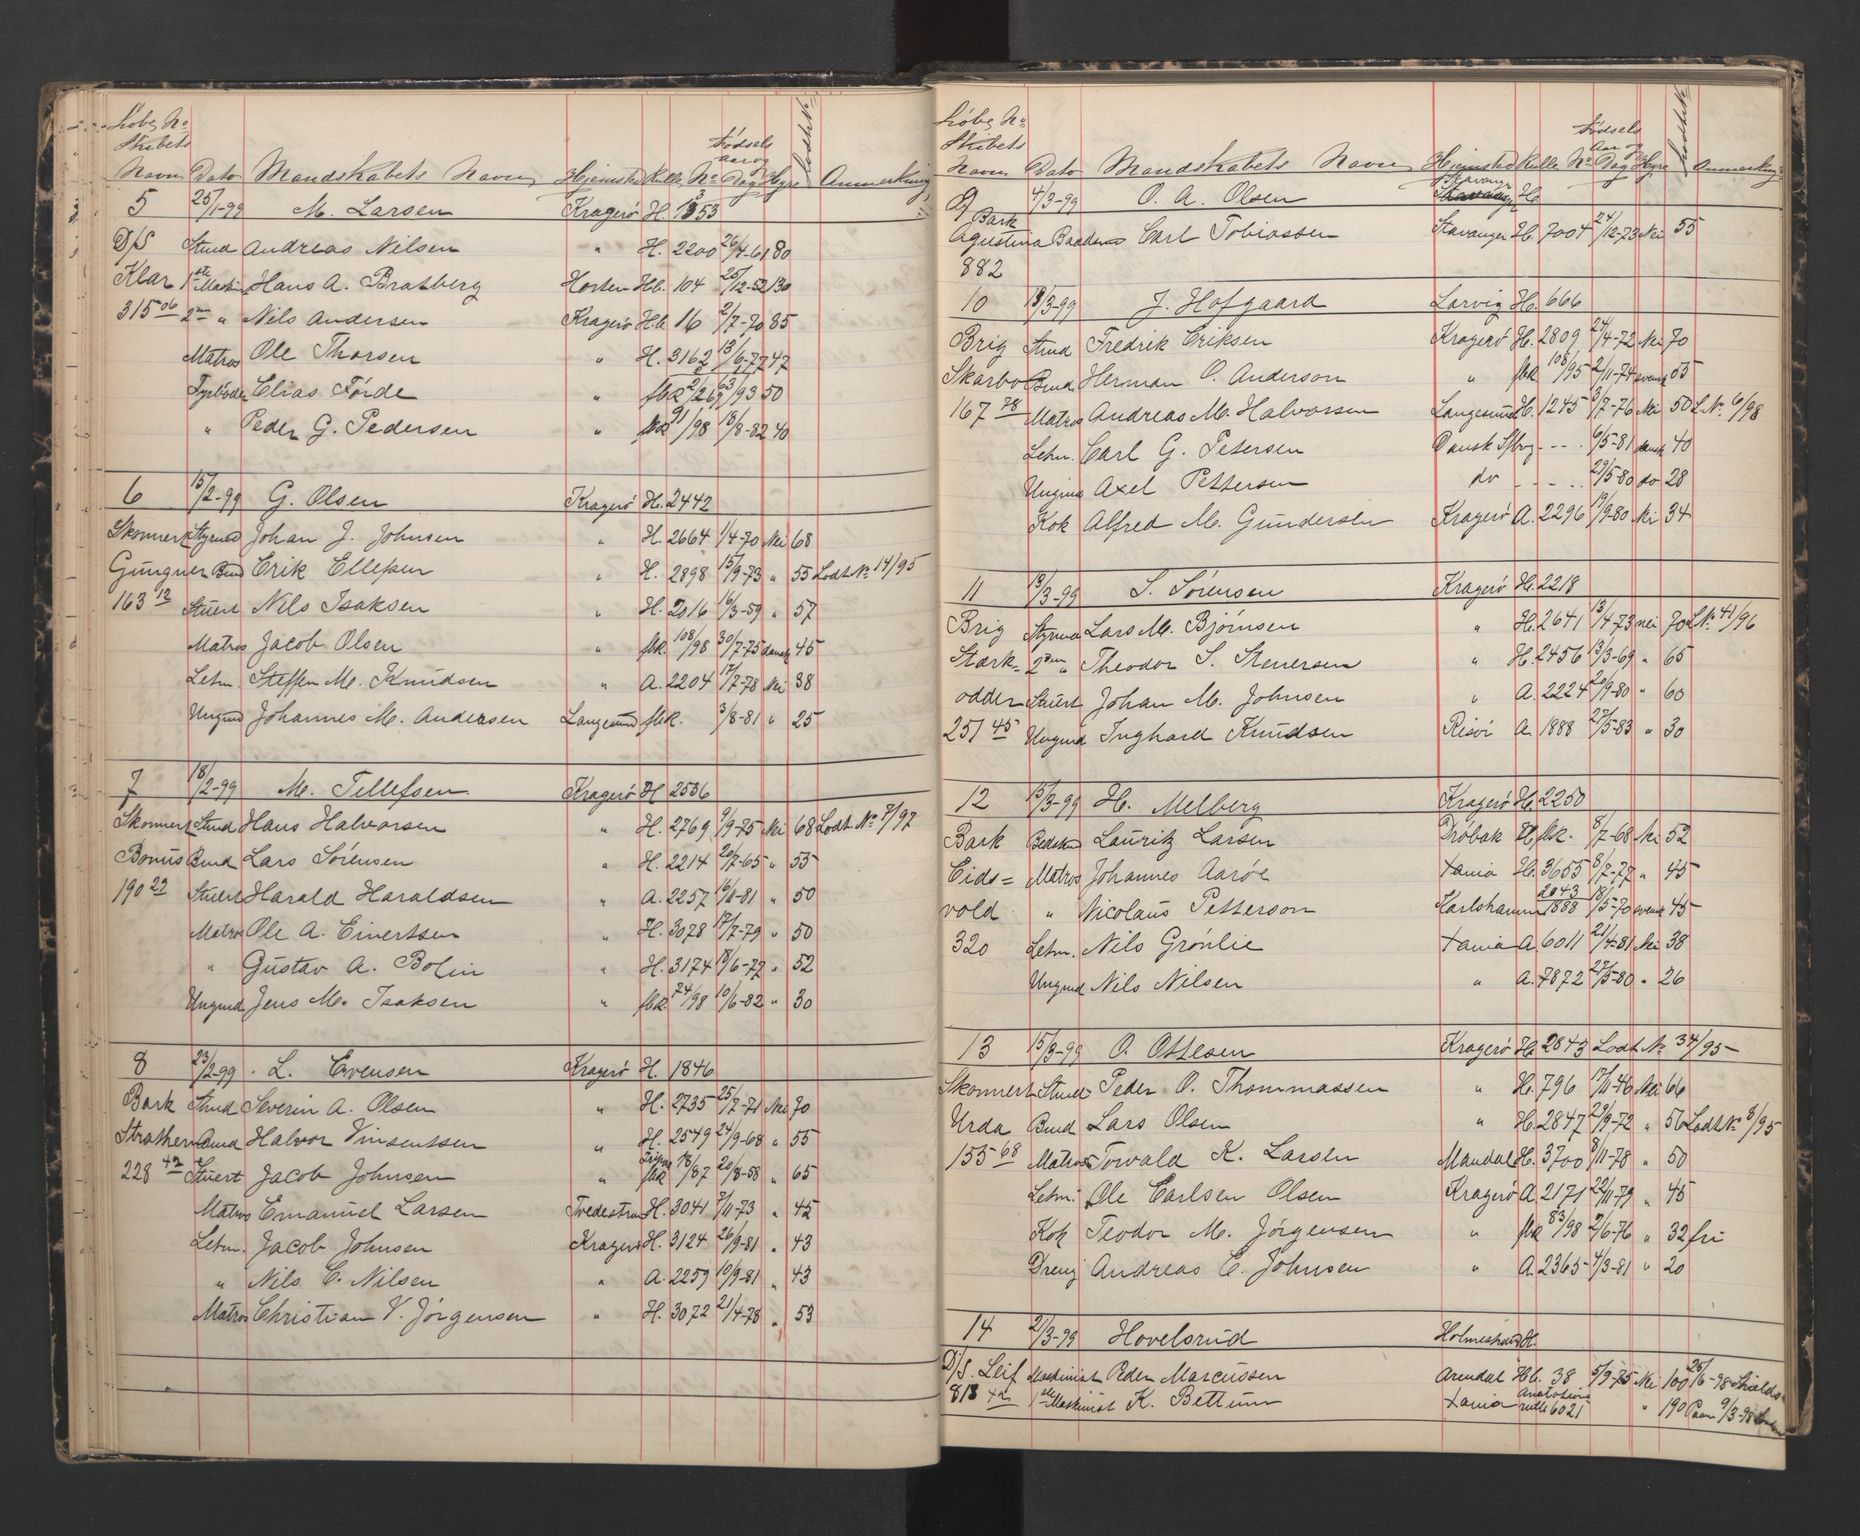 Løbe No
Skibets
Navn Dato Mandskabets Navn Hjemsted Rulle No Fødsels aar og Dag Hyre Lodtsk. Anmerkning
5 25/1-99 M. Larsen Kragerø H. 1353
D/S Stmd Andreas Nilsen " H. 2200 26/4-61 80
Klar 1ste Maskin Hans A. Bratberg Horten Hb. 104 25/12-52 130
315 06 2den " Nils Andersen Kragerø H.b. 16 2/7-70 85
Matros Ole Thorsen " H. 3162 13/6-77 47
Fyrbøder Elias Förde " fbk 2/2 69 63/93 50
" Peder G. Pedersen " fbk 91/98 18/8-82 40
6 15/2-99 G. Olsen Kragerö H. 2442
Skonnert Styrmd Johan J. Johnsen " H. 2664 1/4-70 Nei 68
Gungner Bmd Erik Ellefsen " H. 2898 15/9-73 " 55 Lodt No 14/95
163 12 Stuert Nils Isaksen " H. 2016 16/3-59 " 57
Matros Jacob Olsen " fbk. 108/98 30/7-75 dansk 45
Letm. Steffen M. Knudsen " A. 2204 17/7-78 Nei 38
Ungmd Johannes M. Andersen Langesund fbk. 3/8-81 " 25
7 18/2-99 M. Tellefsen Kragerö H 2536
Skonnert Stmd Hans Halvorsen " H. 2769 9/9-75 Nei 68 Lodt No 7/97
Bonus Bmd Lars Sörensen " H. 2214 20/7-65 " 55
190 22 Stuert Harald Haraldsen " A. 2257 16/11-81 " 50
Matros Ole A. Eivertsen " H. 3078 17/7-79 " 50
" Gustav A. Bolin " H. 3174 18/6-77 " 52
Ungmd Jens M. Isaksen " fbk. 74/98 10/6-82 " 30
8 23/2-99 L. Evensen Kragerö H. 1846
Bark Stmd Severin A. Olsen " H. 2735 25/7-71 Nei 70
Strathern Bmd Halvor Vinsentsen " H. 2549 24/9-68 " 55
228 42 Stuert Jacob Johnsen " fbk 18/87 20/8-58 " 65
Matros Emanuel Larsen Tvedestrand H. 3041 7/11-73 " 45
Letm. Jacob Johnsen Kragerö H. 3124 26/9-81 " 43
" Nils C. Nilsen " A. 2259 10/9-81 " 43
Matros Christian V. Jörgensen " H. 3072 21/4-78 " 53
Løbe No
Skibets
Navn Dato Mandskabets Navn Hjemsted Rulle No Fødsels Aar og Dag Hyre Lodtsk. Anmerkning
9 4/3-99 O. A. Olsen Stavanger H.
Bark
Agustina Baadsmd Carl Tobiassen Stavanger H. 7004 24/12-73 Nei 55
882
10 13/3-99 J. Hofgaard Larvig H. 666
Brig Stmd Fredrik Eriksen Kragerø H. 2809 24/4-72 Nei 70
Skarbo Bmd Herman O. Anderson " fbk 108/95 2/11-74 svensk 55
167 78 Matros Andreas M. Halvorsen Langesund H. 1245 9/7-76 Nei 50 L. No. 6/98
Letm. Carl G. Petersen Dansk Sfbog - - - 6/5-81 dansk 40
Ungmd Axel Pettersen do - - - 29/5-80 do 28
Kok Alfred M. Gundersen Kragerö A. 2296 19/9-80 Nei 34
11 13/3-99 S. Sörensen Kragerö H. 2218
Brig Styrmd Lars M. Bjørnsen " H. 2641 13/4-73 nei 70 L. No. 41/96
Stærk= 2den " Theodor S. Stenersen " H. 2456 13/3-69 " 65
odder Stuert Johan M. Johnsen " A. 2224 20/9-80 " 60
251 45 Ungmd Inghard Knudsen Risör A. 1888 27/5-83 " 30
12 15/3-99 H. Melberg Kragerö H. 2250
Bark Bedstmd Lauritz Larsen Dröbak H. fbk. 8/7-68 Nei 52
Eids= Matros Johannes Aaröe Xania H. 3655 8/7-77 " 45
vold " Nicolaus Petterson Karlshamn 2043 1888 18/5-70 svensk 45
320 Letm. Nils Grönlie Xania A. 6011 21/4-81 Nei 38
Ungmd Nils Nilsen " A. 7872 27/5-80 " 26
13 15/3-99 O. Ottesen Kragerö H. 2843 Lodt No 34/95
Skonnert Stmd Peder O. Thommassen " H. 796 17/11-46 Nei 66
Urda Bmd Lars Olsen " H. 2847 29/9-72 " 56 Lodt No 8/95
155 68 Matros Torvald K. Larsen Mandal H. 3700 8/11-78 " 50
Letm. Ole Carlsen Olsen Kragerö A. 2171 22/11-79 " 45
Kok Teodor M. Jörgensen " fbk 83/98 9/6-76 " 32 fri
Dreng Andreas C. Johnsen " A. 2365 4/3-81 " 20
14 21/3-99 Hovelsrud Holmestrand H.
D/S. Leif Maskinist Peder Marcussen Arendal Hb. 38 5/9-75 Nei 100 25/6-98 Shields
813 42 1ste Maskinist K. Bettum Xania rulle 6021 " 190 9/3-98